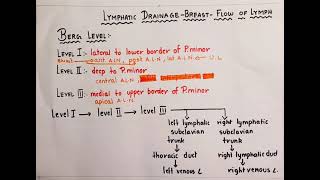 LYMPHATIC DRAINAGE-BREAST-FLOW OF LYMPH
BERG LEVEL:-
LEVEL I:- lateral to lower border of P.minor
ant. A.L.N, post A.L.N, lat A.L.N ← U.L
LEVEL II:- deep to P.minor
central A.L.N
LEVEL III:- medial to upper border of P.minor
apical A.L.N
Level I → level II → level III
left lymphatic subclavian trunk
thoracic duct
left venous L.
right lymphatic subclavian trunk
right lymphatic duct
right venous L.